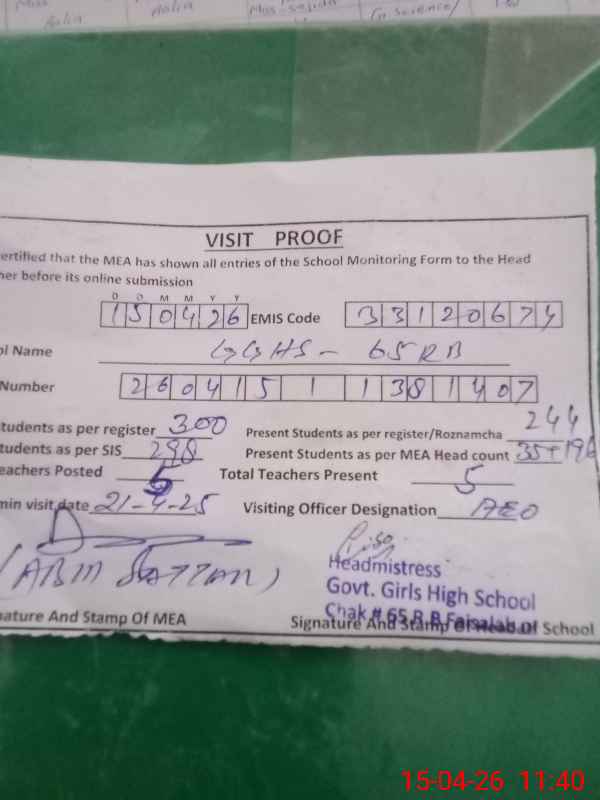 Miss Aalia
Aalia
Miss Sajida
Science
VISIT PROOF
ertified that the MEA has shown all entries of the School Monitoring Form to the Head
her before its online submission
D D M M Y Y
150426 EMIS Code 33120674
ol Name GGHS - 65 RB
Number 260415 1 1381407
tudents as per register 300 Present Students as per register/Roznamcha 244
tudents as per SIS 298 Present Students as per MEA Head count 35+196
eachers Posted 5 Total Teachers Present 5
min visit date 21-4-25 Visiting Officer Designation AEO
Headmistress
Govt. Girls High School
Chak # 65 R.B Faisalabad
nature And Stamp Of MEA Signature And Stamp of Head Of School
15-04-26 11:40